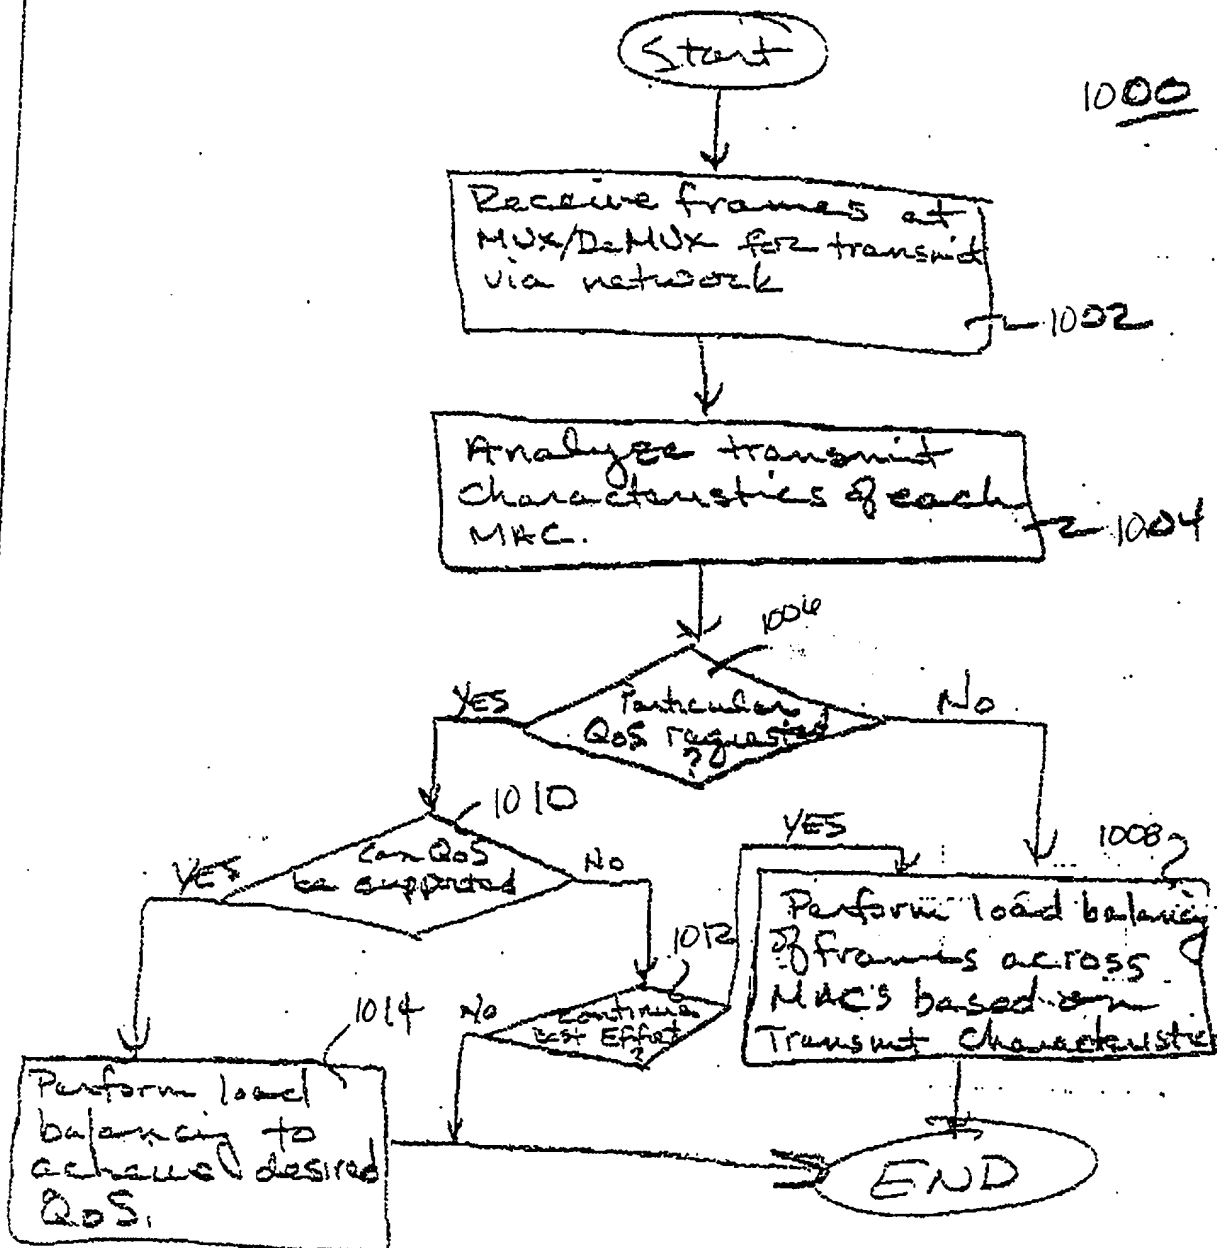 Start
1000
Receive frames at
MUX/DeMUX for transmit
via network
1002
Analyze transmit
characteristics of each
MAC.
1004
1006
Particular
QoS requested
?
YES
No
1010
Can QoS
be supported
YES
No
YES
1008
Perform load balancing
of frames across
MAC's based on
Transmit Characteristic
1012
Continue
Best Effort
?
No
1014
Perform load
balancing to
acheive desired
QoS.
END